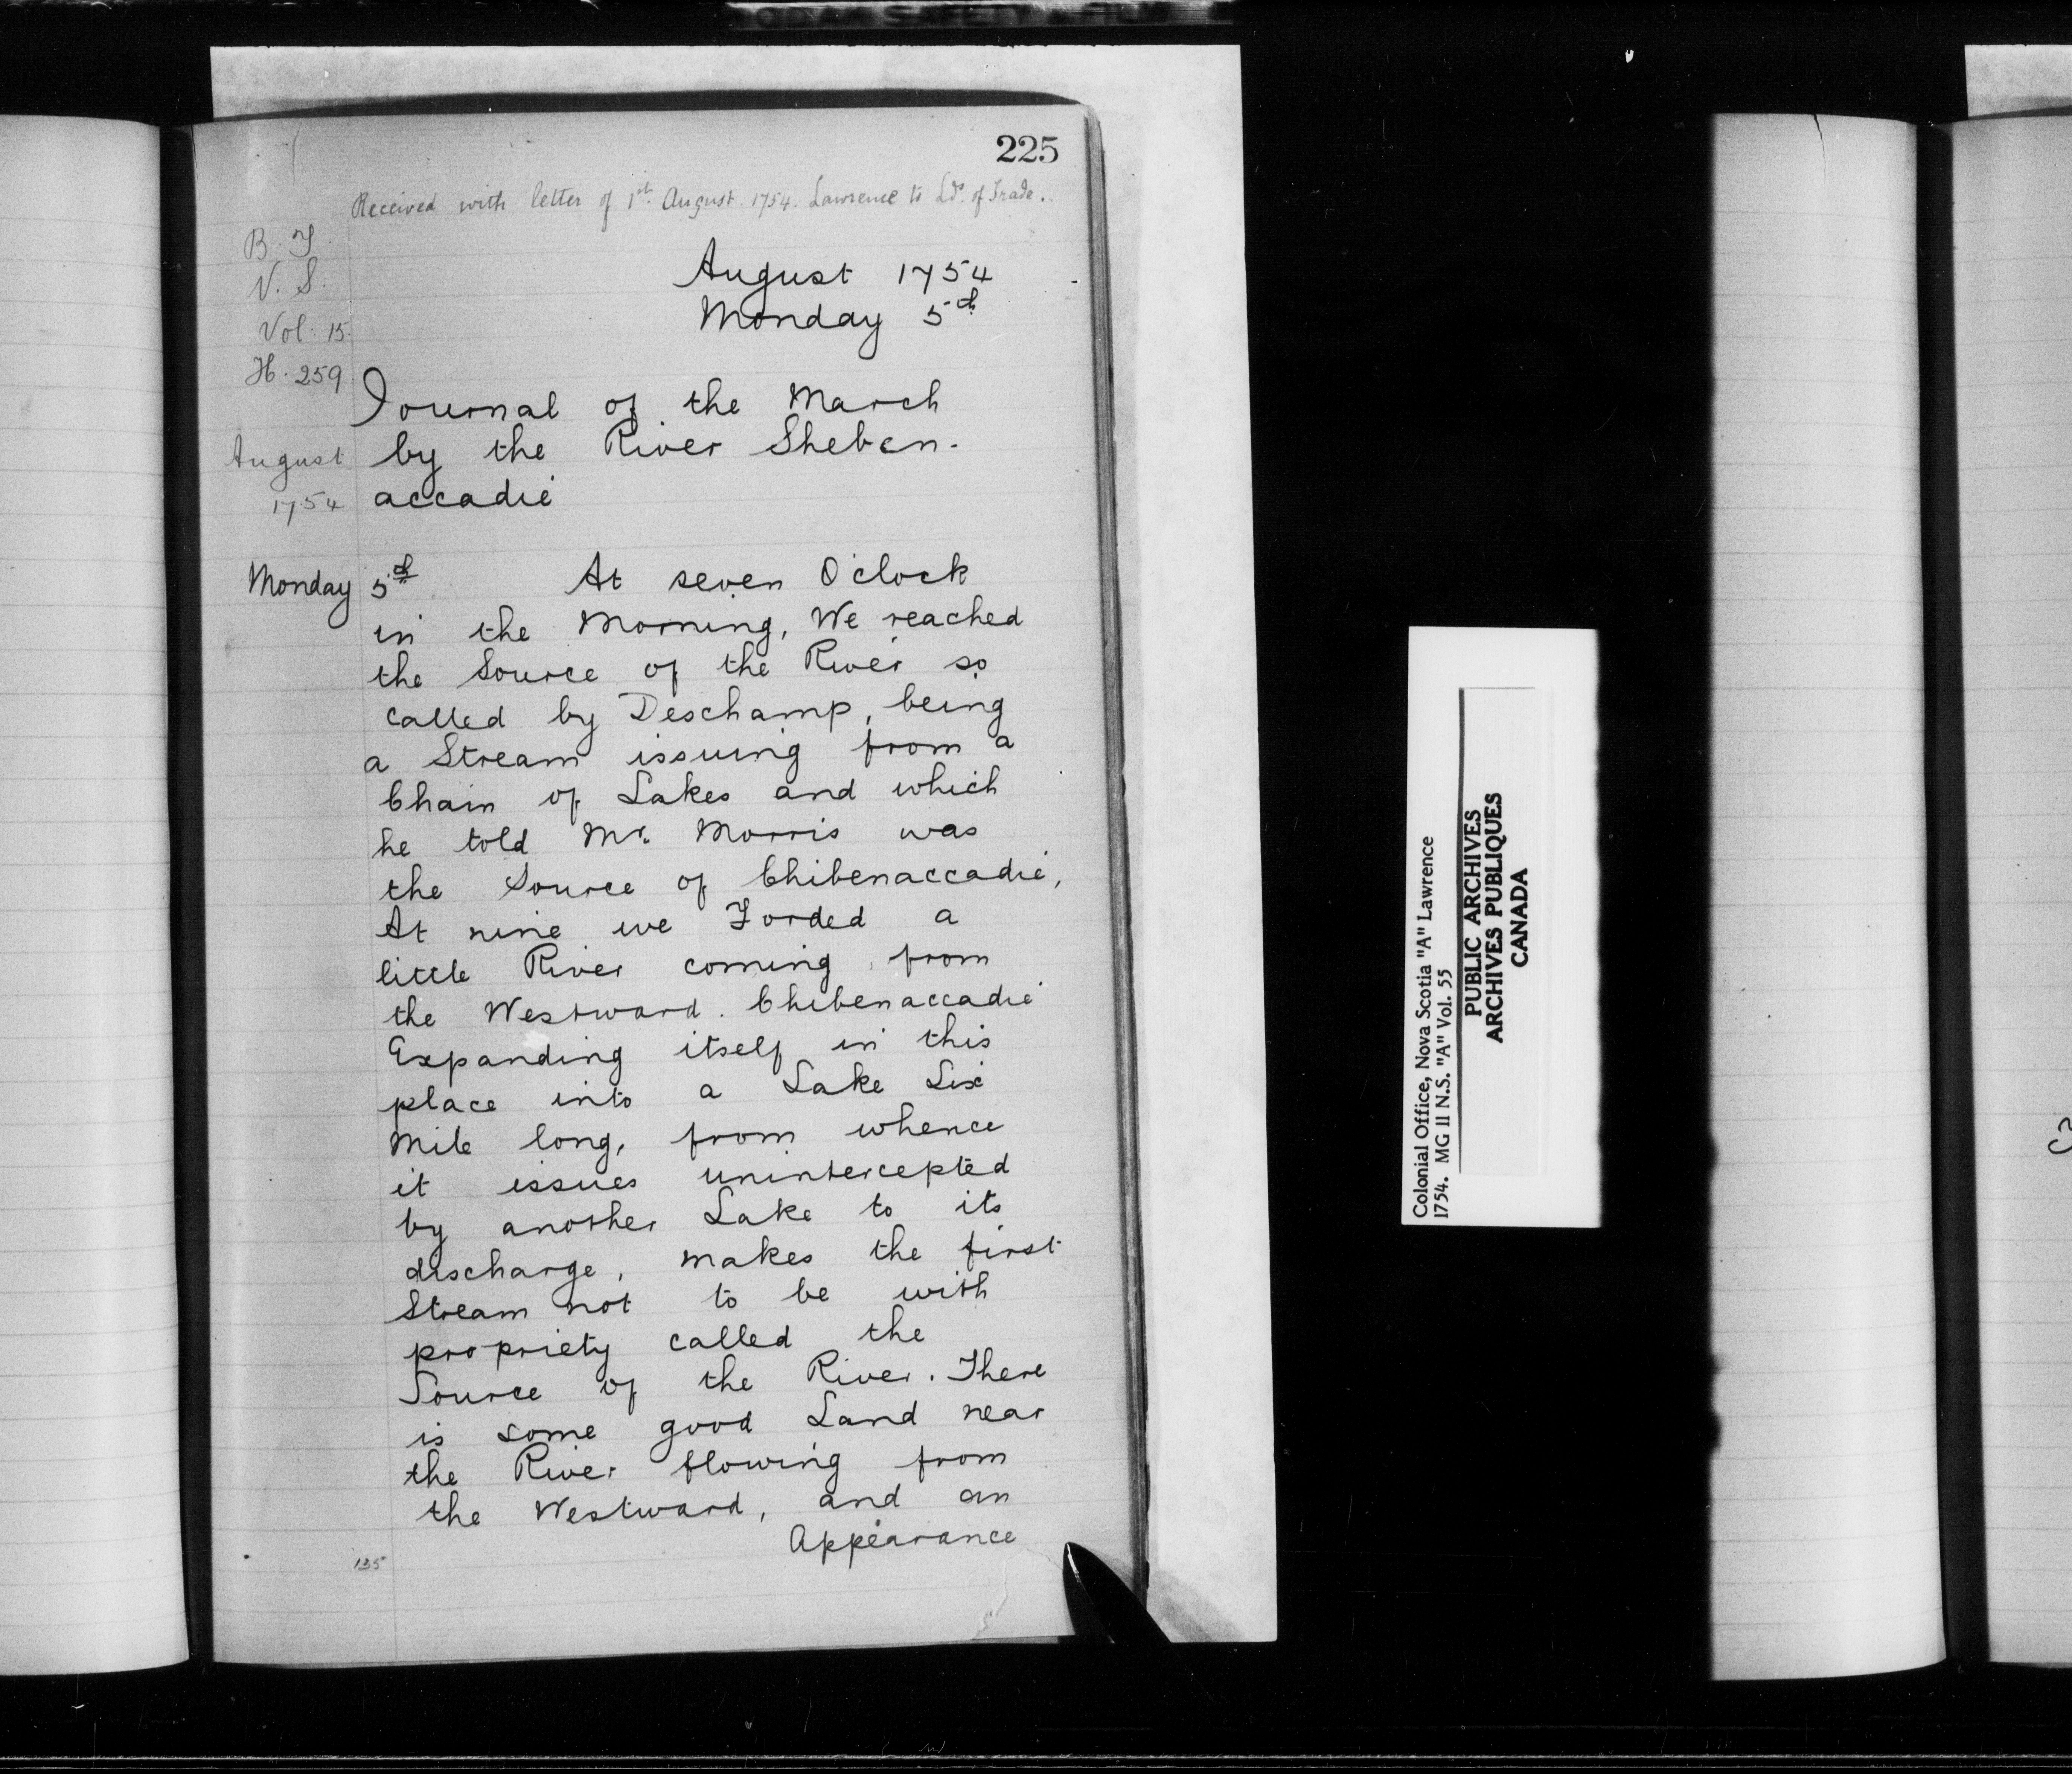 225
Received with letter of 1st August. 1754. Lawrence to Lds. of Trade.
B. T.
N. S.
Vol. 15.
H. 259
August 1754
Monday 5th
Journal of the March
by the River Sheben-
accadié
August
1754
Monday 5th At seven O'clock
in the Morning, We reached
the Source of the River so
called by Deschamp, being
a Stream issuing from a
Chain of Lakes and which
he told Mr. Morris was
the Source of Chibenaccadié,
At nine we Forded a
little River coming from
the Westward. Chibenaccadié
Expanding itself in this
place into a Lake Six
Mile long, from whence
it issues unintercepted
by another Lake to its
discharge, makes the first
Stream not to be with
propriety called the
Source of the River. There
is some good Land near
the River flowing from
the Westward, and an
Appearance
135
Colonial Office, Nova Scotia "A" Lawrence
1754. MG 11 N.S. "A" Vol. 55
PUBLIC ARCHIVES
ARCHIVES PUBLIQUES
CANADA